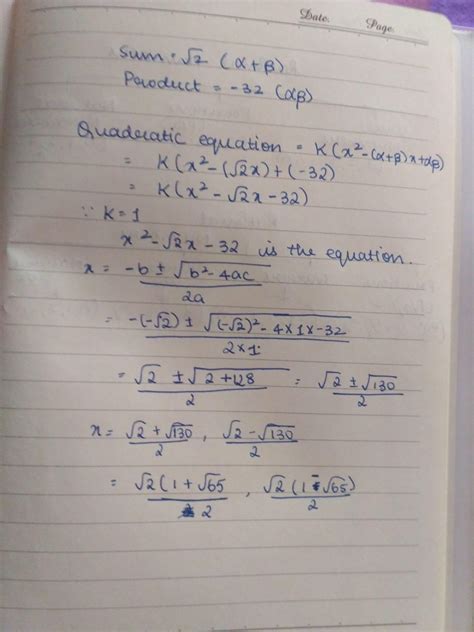 Date. Page.
Sum = √2 (α+β)
Product = -32 (αβ)
Quadratic equation = K(x²-(α+β)x+αβ)
= K(x²-(√2x)+(-32)
= K(x²-√2x-32)
∵ K=1
x²-√2x-32 is the equation.
x = (-b ± √(b²-4ac))/2a
= (-(-√2) ± √((-√2)²-4×1×-32))/(2×1)
= (√2 ± √(2+128))/2 = (√2 ± √130)/2
x = (√2+√130)/2 , (√2-√130)/2
= √2(1+√65/2 , √2(1-√65)/2